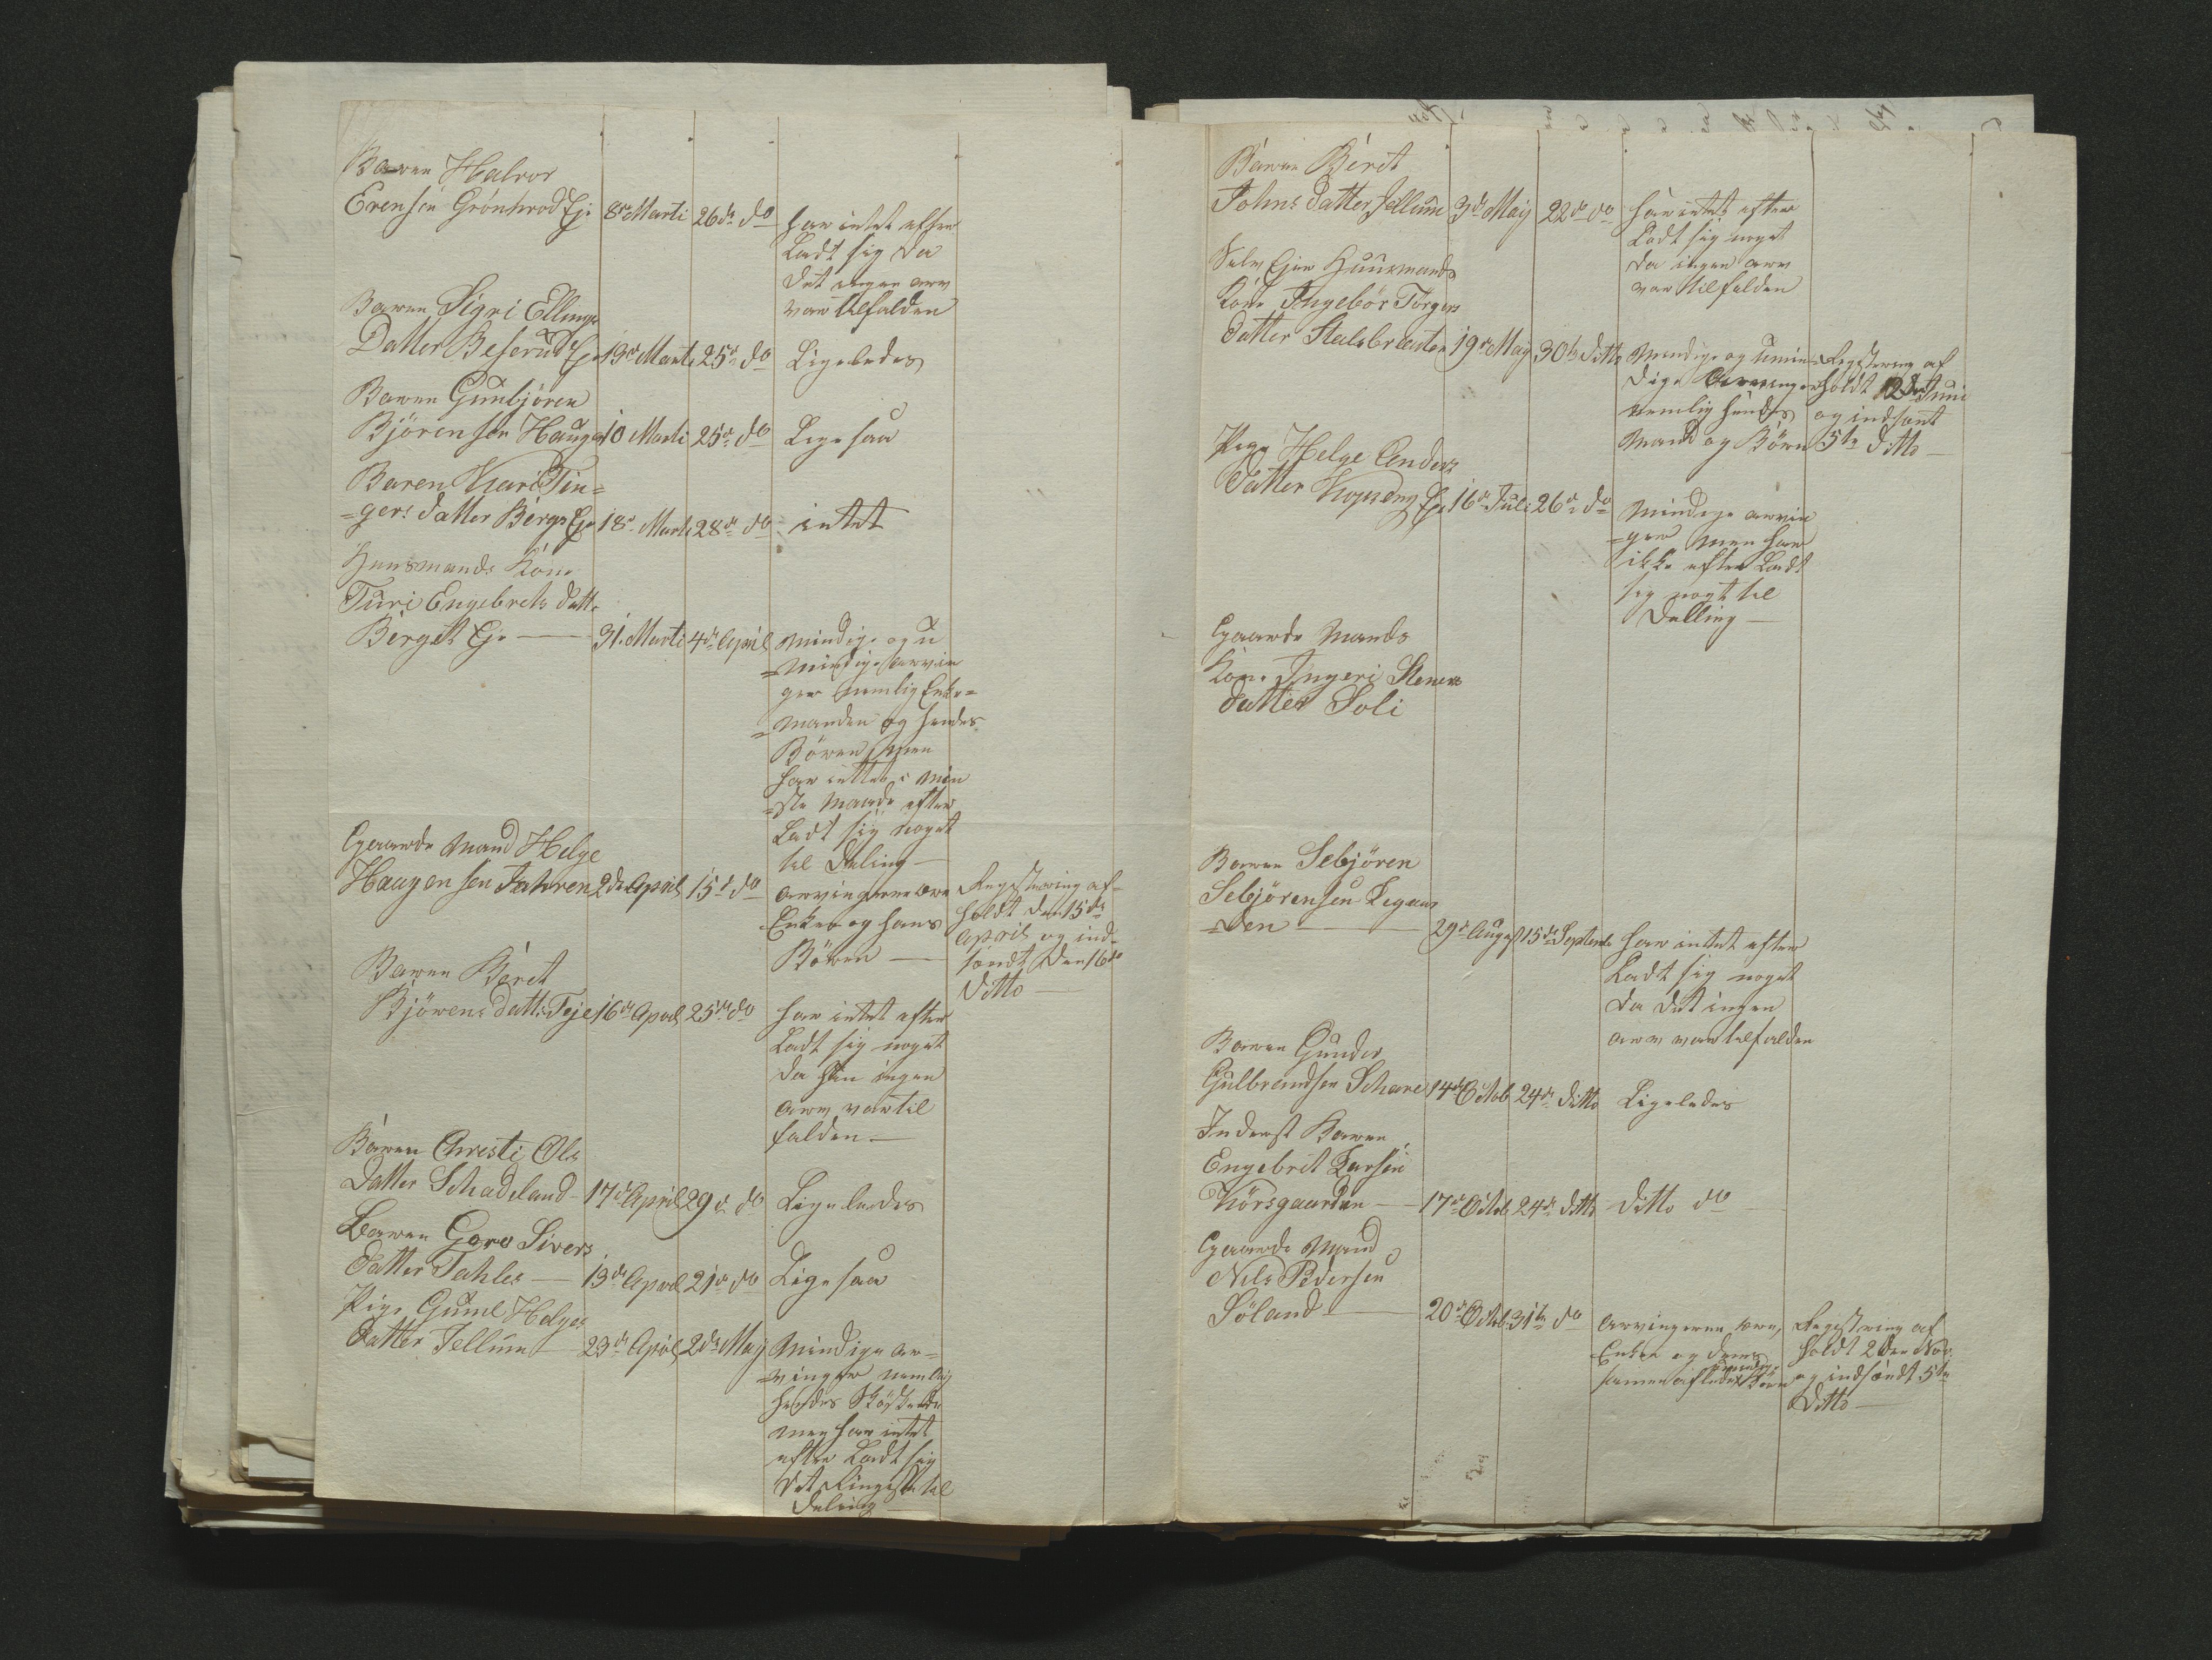 Barnn Halvor
Evensen Grönhrod Eje 8de Marti 26de do har intet efter
Ladt sig da
det ingen arv
var tilfalden
Barnn Sigri Ellings
Datter Beserud Eje 19de Marti 25de do Ligeledes
Barnn Gunbjören
Björensen Hauger 10 Marti 25de do Lige saa
Baren Kari Tin=
=gers datter Berge Eje 18de Marti 28de do intet
Huusmands Kone
Turi Engebrets datter
Berget Eje — 31. Marti 4de April Mindige og u
=mindige arvin
ger nemlig Enke=
=manden og hendes
Börn, men
har intet i min
=ste maade efter
Ladt sig noget
til deling —
Gaarde Mand Helge
Haagensen Jahren 2de April 15de do arvingerne ere
Enken og hans
Börn —
Registering af-
holdt den 15de
April og ind-
sendt den 16de
Ditto —
Barnn Beret
Björens datter Teje 16de April 25de do har intet efter
Ladt sig noget
da hun ingen
arv var til
falden —
Barnn Christi Ols
Datter Schadeland 17de April 29de do Ligeledes
Barnn Goro Sivers
datter Tahler — 13de April 21de do Lige saa
Pige Gunil Helges
datter Jellum — 23de April 2de May Mindige ar=
=vinger nemlig
hendes Södskende
men har intet
efter Ladt sig
det Ringeste til
deling —
Barnn Berit
Johns datter Jellum 3de Maij 22de do har intet efter
Ladt sig noget
da ingen arv
var tilfalden
Selv Ejer Huusmands
Kone Ingebör Torgers
datter Steelebraaten 19de May 30te ditto Mindige og umin=
dige arvinger
nemlig hendes
Mand og Börn
Registering af
holdt 2den Juni
og indsent
5te ditto —
Pige Helge Anders
datter Eje 16de Juli 26de do Mindige arvin
=ger men har
ikke efter Ladt
sig noget til
Delling —
Gaarde Mands
Kone Ingeri Steners
datter Soli
Barnn Sebjören
Sebjörensen Legaar
=den — 29de August 15de Septembr har intet efter
Ladt sig noget
da det ingen
arv var tilfalden
Barnn Gunder
Gulbrandsen Schare 14de Octob 24de ditto Ligeledes
Inderst Barnn
Engebrit Larsen
Korsgaarden — 17de Octob 24de ditto ditto do
Gaarde Mand
Nels Pedersen
Söland — 20de Octob 31te do arvingerne ere,
Enken og deres
sammenaflede umindige Börn
Registering af
holdt 2den Nov.
og indsendt 5te
Ditto —